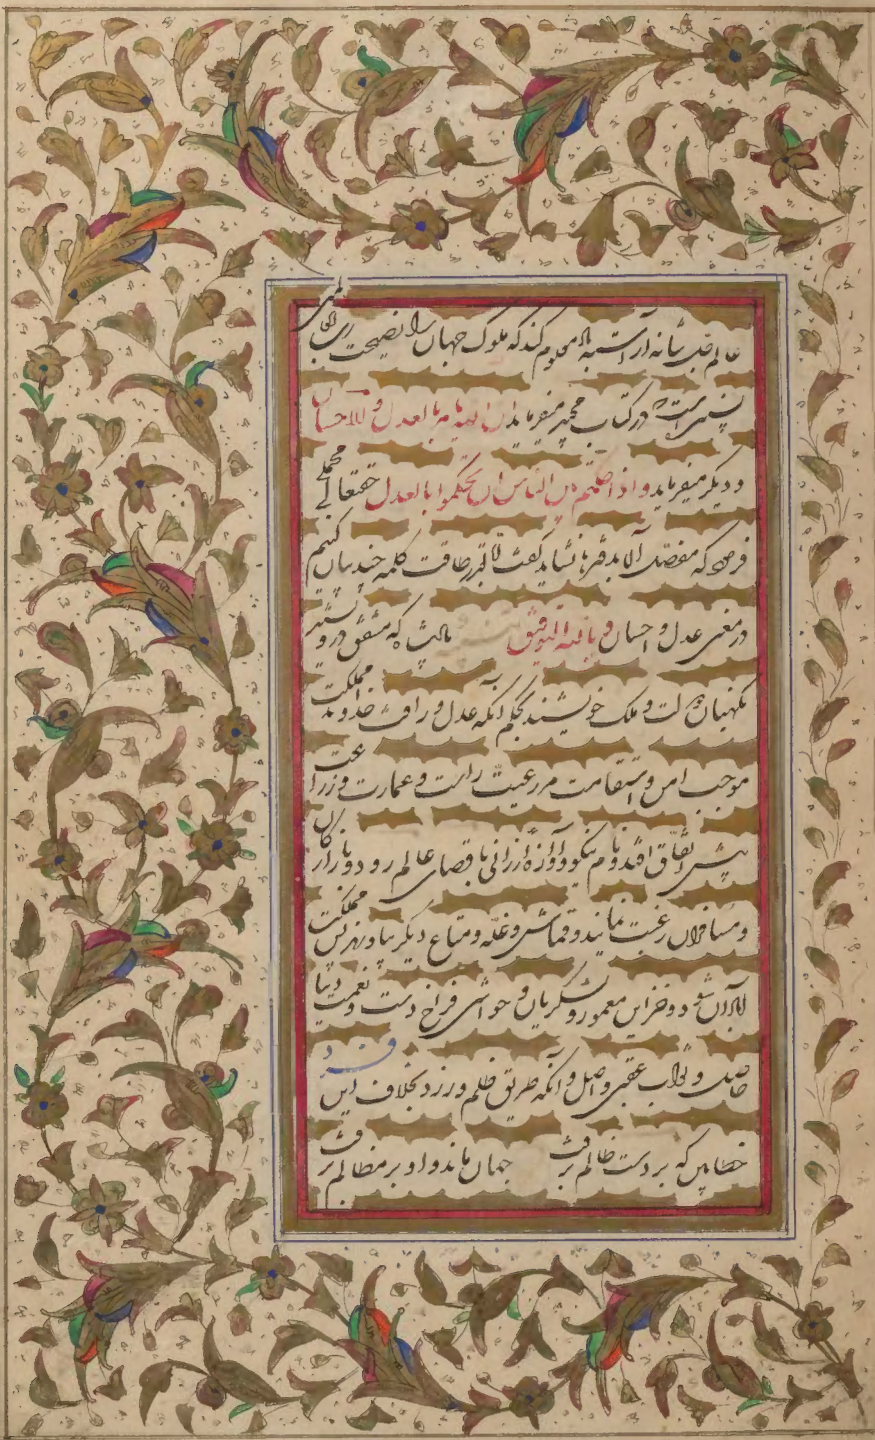 عالم جل شانه معلوم کند که ملوک جهان را نصیحت رب العالمین
در کتاب مجید میفرماید ان الله یامر بالعدل والاحسان
و دیگر میفرماید و اذا حکمتم بین الناس ان تحکموا بالعدل حقتعالی مجملی
فرموده که مفصل آن بدفترها نشاید گفت الا بقدر طاقت کلمه چند بیان کنیم
در معنی عدل و احسان و بالله التوفیق که مشفق درویشند
نگهبان دولت و ملک خویشند بحکم آنکه عدل و رافت خداوند مملکت
موجب امن و استقامت مر رعیت راست و عمارت و زراعت
بیش اتفاق افتد و نام نیکو و آوازه ارزانی باقصای عالم رود و بازارکان
و مسافران رغبت نمایند و قماش و غله و متاع دیگر مملکت
آبادان شود و خزاین معمور و لشکریان و حواشی فراخ دست و نعمت دنیا
حاصل و ثواب عقبی واصل و آنکه طریق ظلم ورزد بخلاف این
خطا بین که بر دست ظالم برفت جهان ماند و او بر مظالم برفت